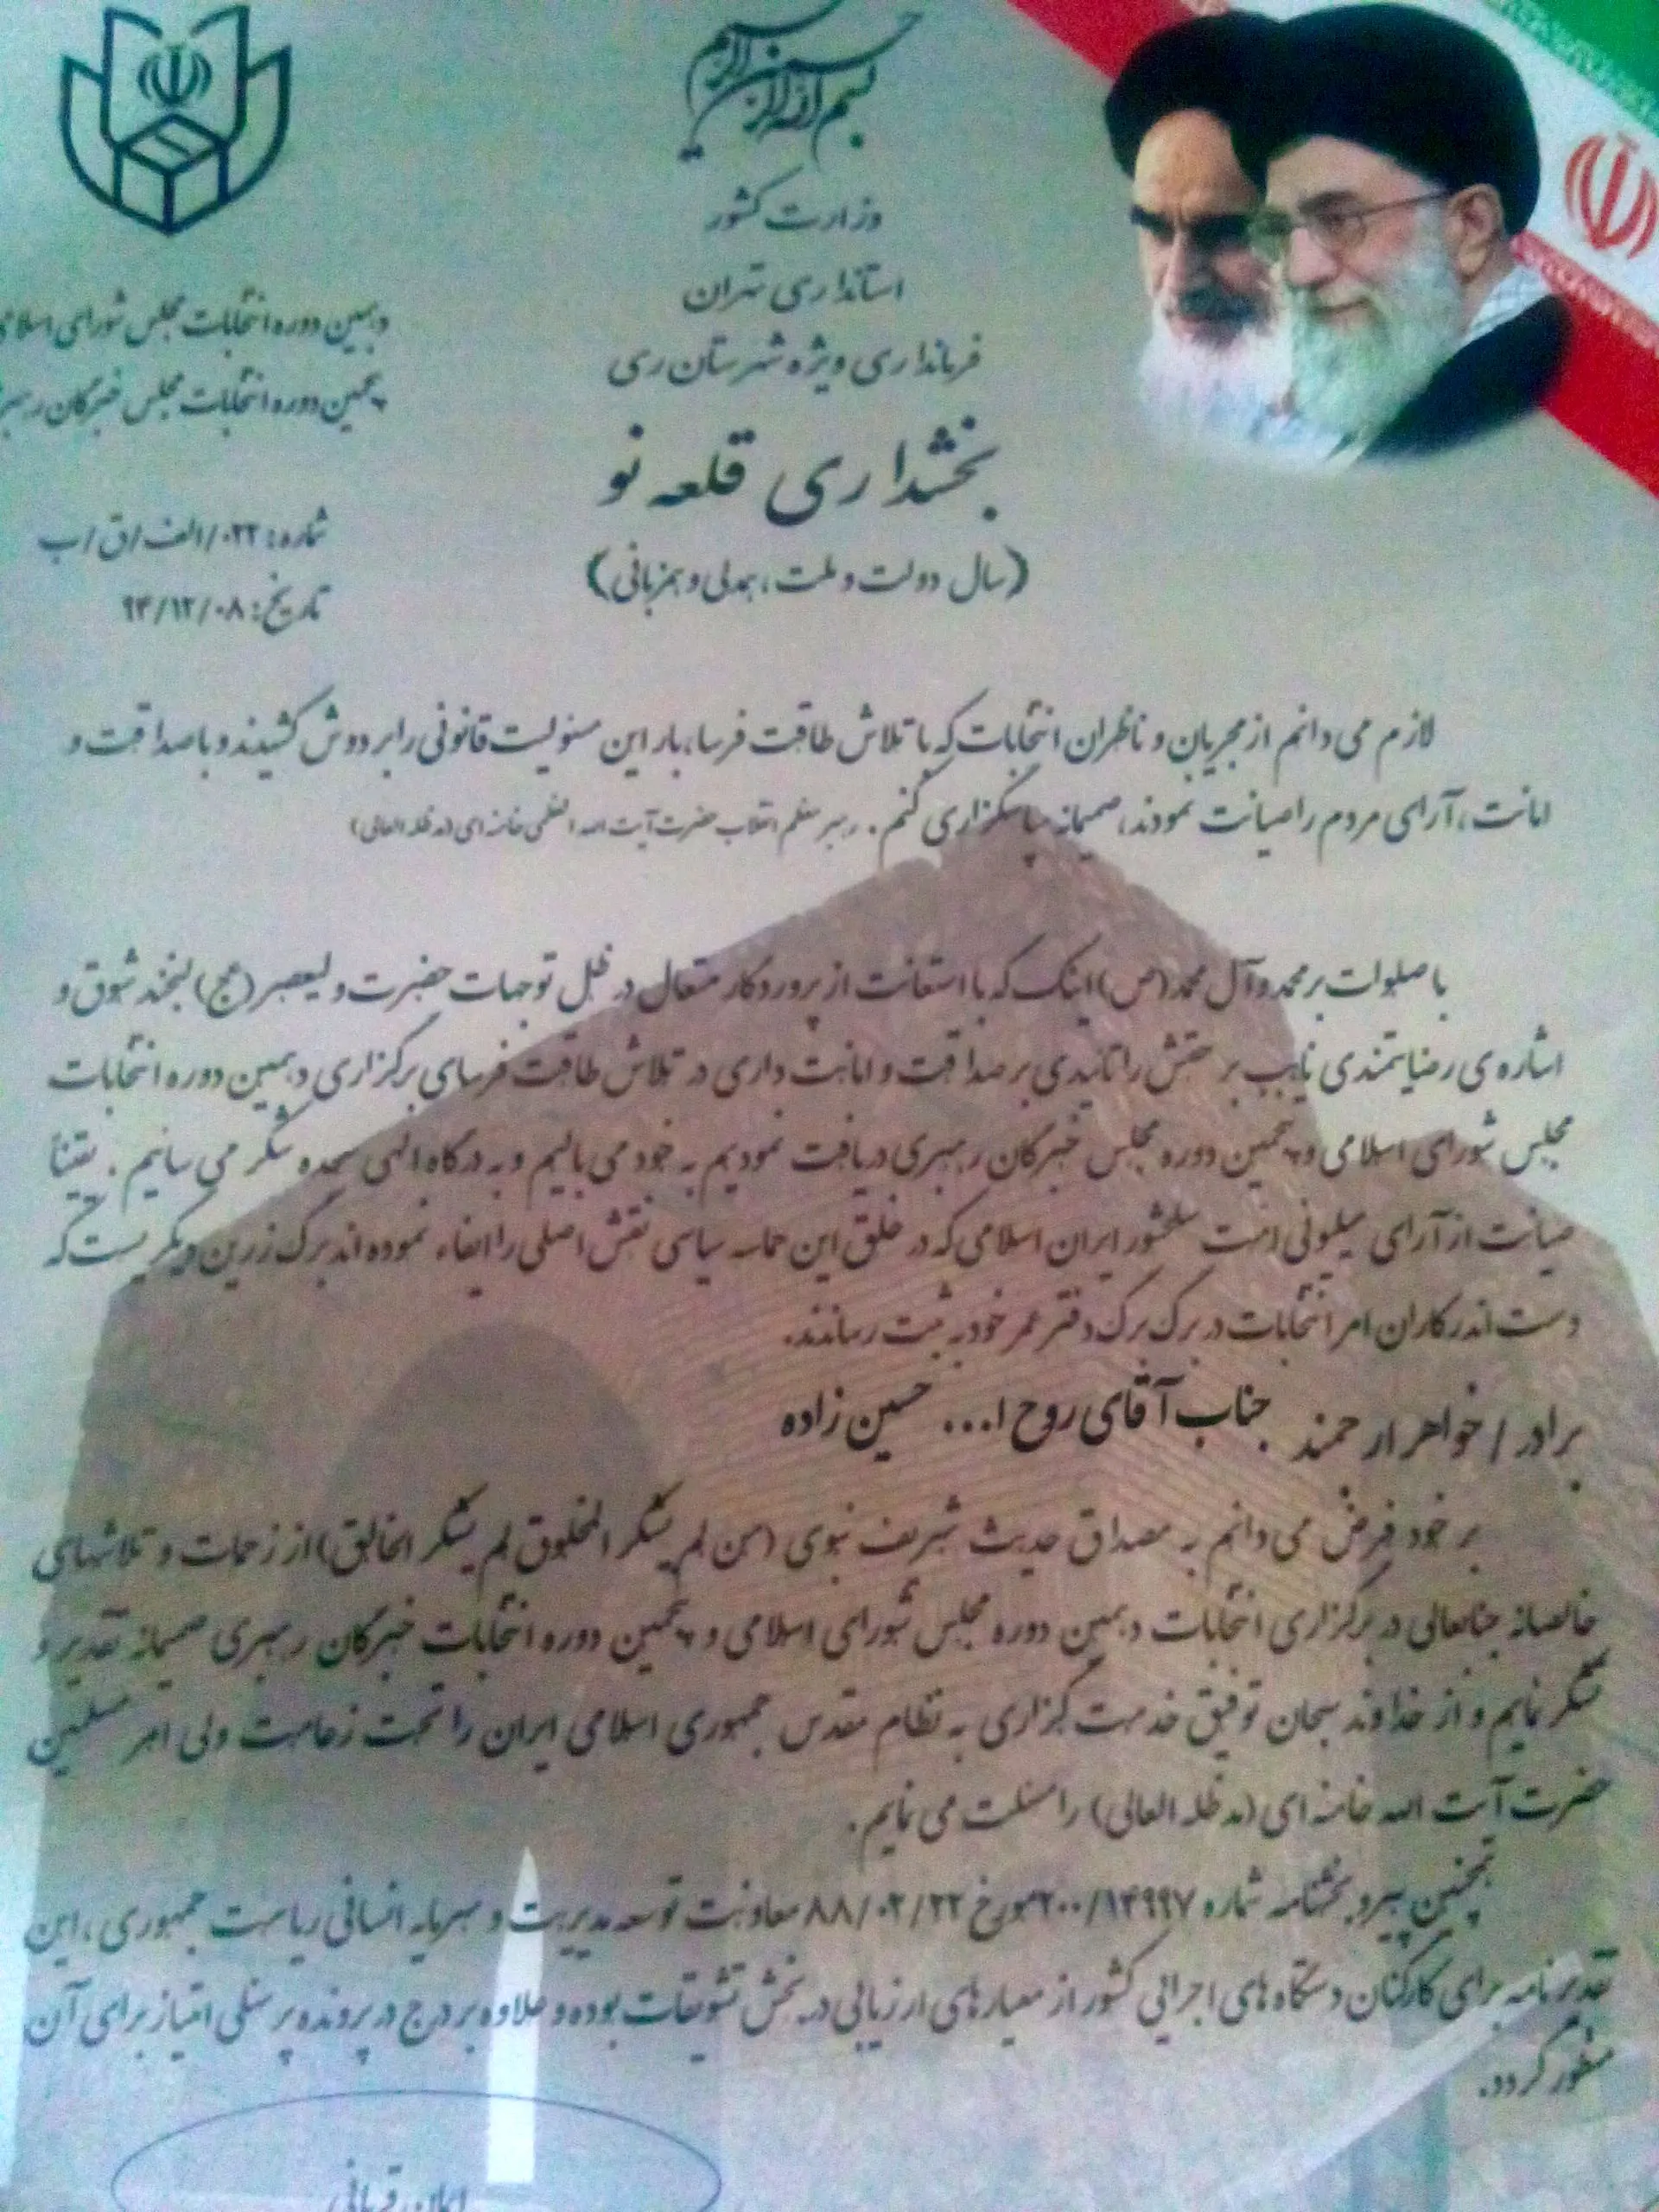 بسم الله الرحمن الرحیم
وزارت کشور
استانداری تهران
فرمانداری ویژه شهرستان ری
بخشداری قلعه نو
(سال دولت و ملت، همدلی و همزبانی)
دهمین دوره انتخابات مجلس شورای اسلامی
پنجمین دوره انتخابات مجلس خبرگان رهبری
شماره: ۰۲۲/الف/ق/ب
تاریخ: ۹۴/۱۲/۰۸
لازم می دانم از مجریان و ناظران انتخابات که با تلاش طاقت فرسا، بار این مسئولیت قانونی را بر دوش کشیدند و با صداقت و
امانت، آرای مردم را صیانت نمودند، صمیمانه سپاسگزاری کنم. رهبر معظم انقلاب حضرت آیت الله العظمی خامنه ای (مد ظله العالی)
با صلوات بر محمد و آل محمد (ص) اینک که با استعانت از پروردگار متعال در ظل توجهات حضرت ولیعصر (عج) لبخند شوق و
اشاره ی رضایتمندی نایب بر حقش را تاییدی بر صداقت و امانت داری در تلاش طاقت فرسای برگزاری دهمین دوره انتخابات
مجلس شورای اسلامی و پنجمین دوره مجلس خبرگان رهبری دریافت نمودیم به خود می بالیم و به درگاه الهی سجده شکر می سائیم. یقیناً
صیانت از آرای میلیونی امت سلحشور ایران اسلامی که در خلق این حماسه سیاسی نقش اصلی را ایفاء نموده اند برگ زرین دیگریست که
دست اندرکاران امر انتخابات در برگ برگ دفتر عمر خود به ثبت رساندند.
برادر / خواهر ارجمند جناب آقای روح ا... حسین زاده
بر خود فرض می دانم به مصداق حدیث شریف نبوی (من لم یشکر المخلوق لم یشکر الخالق) از زحمات و تلاشهای
خالصانه جنابعالی در برگزاری انتخابات دهمین دوره مجلس شورای اسلامی و پنجمین دوره انتخابات خبرگان رهبری صمیمانه تقدیر و
تشکر نمایم و از خداوند سبحان توفیق خدمت گزاری به نظام مقدس جمهوری اسلامی ایران را تحت زعامت ولی امر مسلمین
حضرت آیت الله خامنه ای (مد ظله العالی) را مسئلت می نمایم.
همچنین پیرو بخشنامه شماره ۲۰۰/۱۴۹۹۷ مورخ ۸۸/۰۲/۲۲ معاونت توسعه مدیریت و سرمایه انسانی ریاست جمهوری، این
تقدیرنامه برای کارکنان دستگاه های اجرائی کشور از معیارهای ارزیابی در بخش تشویقات بوده و علاوه بر درج در پرونده پرسنلی امتیاز برای آن
منظور گردد.
ایمان قربانی